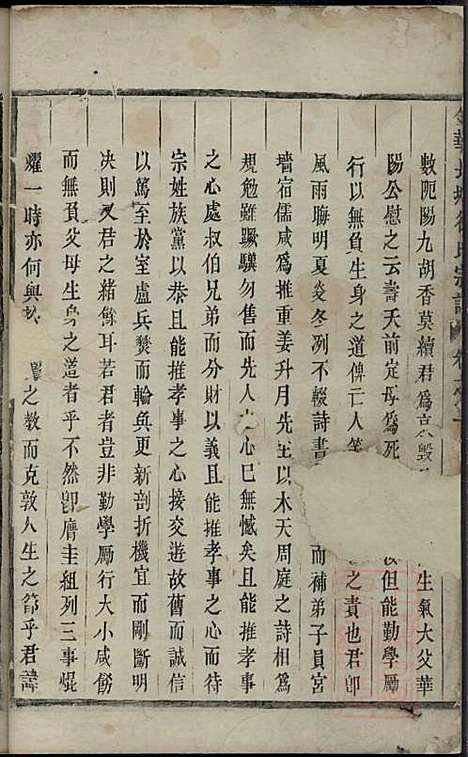 數阨陽九胡香莫續君爲哀毀 生氣大父華
陽公慰之云壽夭前定毋爲死 後但能勤學厲
行以無負生身之道俾亡人笑 之責也君卽
風雨晦明夏炎冬冽不輟詩書 而補弟子員宮
墻宿儒咸爲推重姜升月先生以木天周庭之詩相爲
規勉雖驥驥勿售而先人之心已無憾矣且能推孝事
之心處叔伯兄弟而分財以義且能推孝事之心而待
宗姓族黨以恭且能推孝事之心接交遊故舊而誠信
以篤至於室盧兵燹而輪奐更新剖折機宜而剛斷明
决則又君之緒餘耳若君者豈非勤學厲行大小咸飭
而無負父母生身之道者乎不然卽膺圭組列三事焜
耀一時亦何與 之敎而克敦人生之節乎君諱